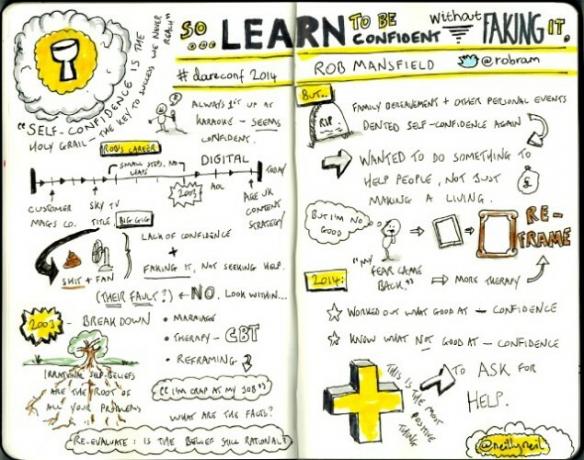 SO... LEARN TO BE CONFIDENT Without FAKING IT.
# dareconf 2014
ROB MANSFIELD @robram
"SELF-CONFIDENCE IS THE
HOLY GRAIL - THE KEY TO SUCCESS WE NEVER
REACH"
ALWAYS 1ST UP AT
KARAOKE - SEEMS
CONFIDENT.
ROB'S CAREER
SMALL STEPS, NO
LEAPS
DIGITAL
TODAY
CUSTOMER
MAGS CO.
SKY TV
TITLE.
BIG GIG
2003
AOL
AGE UK
CONTENT
STRATEGY
SHIT + FAN
LACK OF CONFIDENCE
+
FAKING IT, NOT SEEKING HELP.
(THEIR FAULT?) ← NO. LOOK WITHIN...
2003 - BREAKDOWN
• MARRIAGE
• THERAPY - CBT
• REFRAMING
IRRATIONAL SELF-BELIEFS
ARE THE ROOT OF
ALL YOUR PROBLEMS
"I'M CRAP AT MY JOB"
WHAT ARE THE FACTS?
RE-EVALUATE: IS THE BELIEF STILL RATIONAL?
BUT...
RIP
FAMILY BEREAVEMENT + OTHER PERSONAL EVENTS
DENTED SELF-CONFIDENCE AGAIN
WANTED TO DO SOMETHING TO
HELP PEOPLE, NOT JUST
MAKING A LIVING.
£
BUT I'M NO
GOOD
RE-
FRAME
"MY
FEAR CAME
BACK."
→ MORE THERAPY
2014:
WORKED OUT WHAT GOOD AT - CONFIDENCE
KNOW WHAT NOT GOOD AT - CONFIDENCE
TO ASK FOR
HELP.
THIS IS THE MOST
POSITIVE
THING
@neillyneil